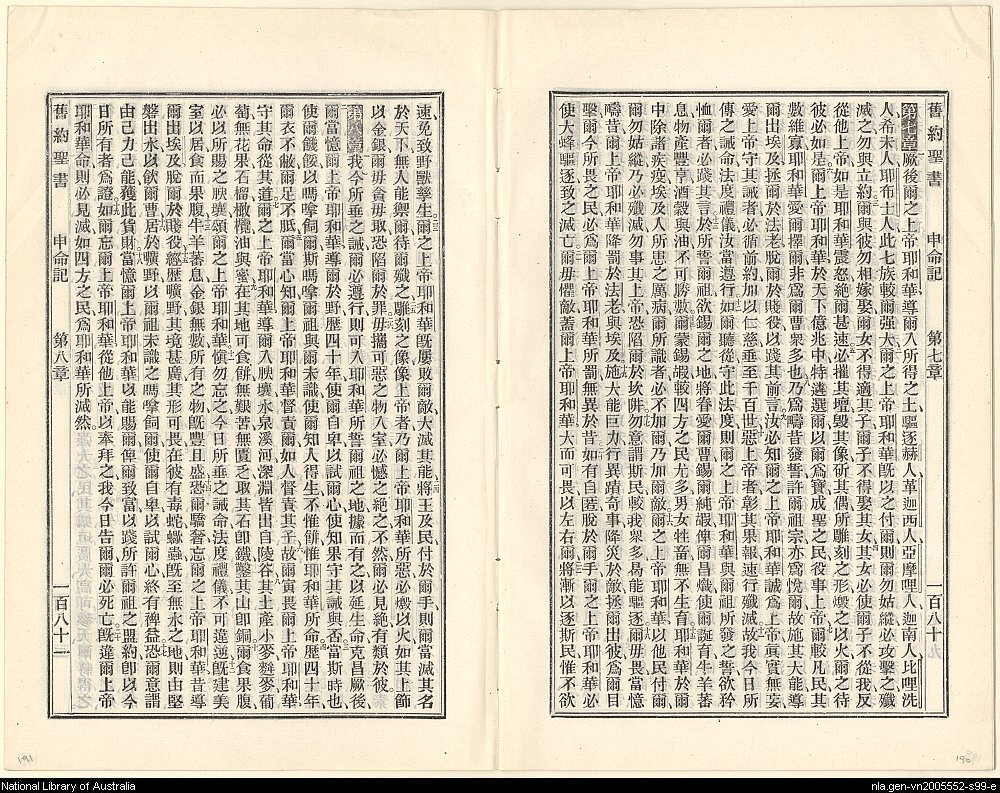 舊約聖書 申命記 第七章 一百八十九
第七章厥後爾之上帝耶和華導爾入所得之土驅逐赫人革迦西人亞摩哩人迦南人比哩洗
人希未人耶布士人此七族較爾强大爾之上帝耶和華旣以之付爾則爾勿姑縱必攻擊之殲
滅之勿與立約爾與彼勿相嫁娶爾女不得適其子爾子不得娶其女其女必使爾子不從我反
從他上帝如是耶和華震怒絶爾甚速必摧其壇毀其像斫其偶所雕刻之形燬之以火爾之待
彼必如是爾上帝耶和華於天下億兆中特遴選爾以爾爲寶成聖之民役事上帝爾較凡民其
數維寡耶和華愛爾擇爾非爲爾曹衆多也乃爲疇昔發誓許爾祖宗亦爲悅爾故施其大能導
爾出埃及拯爾於法老脫爾於賤役以踐其前言汝必知爾之上帝耶和華誠爲上帝眞實無妄
愛上帝守其誡者必循前約加以仁慈垂至千百世惡上帝者彰其果報速行殲滅故我今日所
傳之誡命法度禮儀汝當遵行如爾聽從守此法度則爾之上帝耶和華與爾祖所發之誓欲矜
恤爾者必踐其言於所誓爾祖欲錫爾之地將眷愛爾曹錫爾純嘏俾爾昌熾使爾誕育牛羊蕃
息物產豐亨酒穀與油不可勝數爾蒙錫嘏較四方之民尤多男女牲畜無不生育耶和華於爾
中除諸疾疫埃及人所患之厲病爾所識者必不加爾乃加爾敵爾之上帝耶和華以他民付爾
爾勿姑縱乃必殲滅勿事其上帝恐陷爾於坎阱勿意謂斯民較我衆多易能驅逐爾毋畏當憶
疇昔爾上帝耶和華降罰於法老與埃及施大能巨力行異蹟奇事降災於敵拯爾出彼爲爾目
擊爾今所畏之民必爲爾上帝耶和華所罰無異於昔如有自匿脫於爾手爾上帝耶和華必
使大蜂驅逐致之滅亡爾毋懼敵蓋爾上帝耶和華大而可畏以左右爾將漸以逐斯民惟不欲
速免致野獸孳生爾之上帝耶和華旣屢敗爾敵大滅其能將王及民付於爾手則爾當滅其名
於天下無人能禦爾待爾殲之雕刻之像像上帝者乃爾上帝耶和華所惡必燬以火如其上飾
以金銀爾毋貪毋取恐陷爾於罪毋攜可惡之物入室必憾之絶之不然爾必見絶有類於彼
第八章我今所垂之誡爾必遵行則可入耶和華所誓爾祖之地據而有之以延生命克昌厥後
爾當憶爾上帝耶和華導爾於野歷四十年使爾自卑以試爾心使知果守其誡與否當斯時也
使爾饑餒以嗎嗱飼爾斯嗎嗱爾祖與爾未識使爾知人得生不惟餅惟耶和華所命歷四十年
爾衣不敝爾足不胝爾當心知爾上帝耶和華督責爾如人督責其子故爾寅畏爾上帝耶和華
守其命從其道爾之上帝耶和華導爾入腴壤永泉溪河深淵皆出自陵谷其土產小麥麰麥葡
萄無花果石榴橄欖油與蜜在其地可食餅無艱苦無匱乏取其石卽鐵鑿其山卽銅爾食果腹
必以所賜之腴壤頌爾之上帝耶和華愼勿忘之今日所垂之誡命法度禮儀不可違逆旣建美
室以居食而果腹牛羊蕃息金銀無數所有之物旣豐且盛恐爾驕奢忘爾之上帝耶和華昔導
爾出埃及脫爾於賤役經歷曠野其境甚廣其形可畏在彼有毒蛇蠍蟲旣至無水之地則由堅
磐出水以飲爾曹居於曠野以爾祖未識之嗎嗱飼爾使爾自卑以試爾心終有裨益恐爾意謂
由己力己能獲此貨財當憶爾上帝耶和華以能賜爾俾爾致富以踐所許爾祖之盟約卽以今
日所有者爲證如爾忘爾上帝耶和華從他上帝以奉拜之我今日告爾爾必死亡旣違爾上帝
耶和華命則必見滅如四方之民爲耶和華所滅然
舊約聖書 申命記 第八章 一百八十二
191
190
National Library of Australia
nla.gen-vn2005552-s99-e